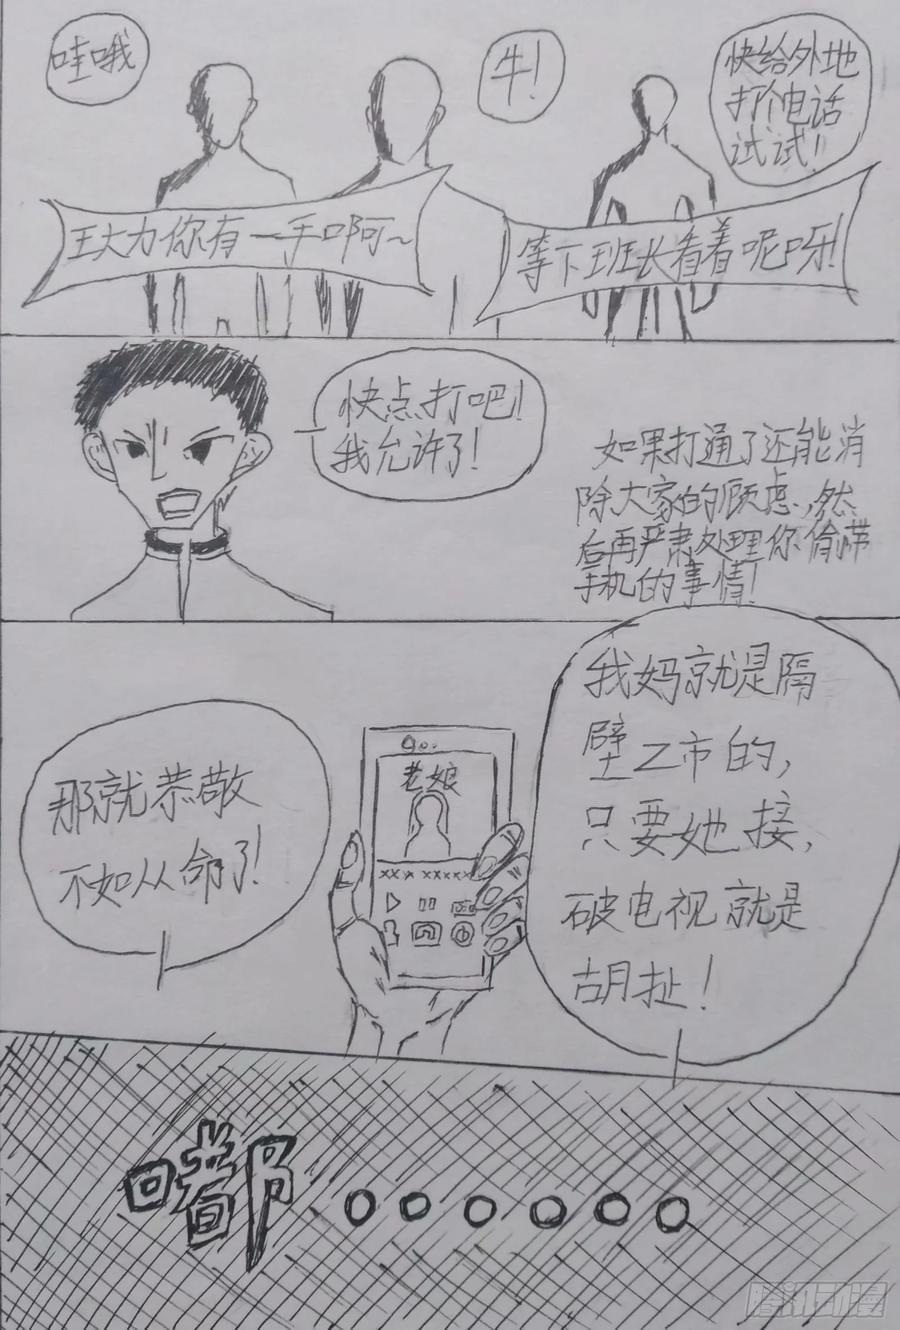 哇哦
牛！
快给外地
打个电话
试试！！
王大力你有一手啊~
等下班长看着呢呀！
快点打吧！
我允许了！
如果打通了还能消
除大家的顾虑，然
后再严肃处理你偷带
手机的事情！
我妈就是隔
壁乙市的，
只要她接，
破电视就是
胡扯！
那就恭敬
不如从命了！
老娘
xxx xxxxx
嘟。。。。。。
腾讯动漫